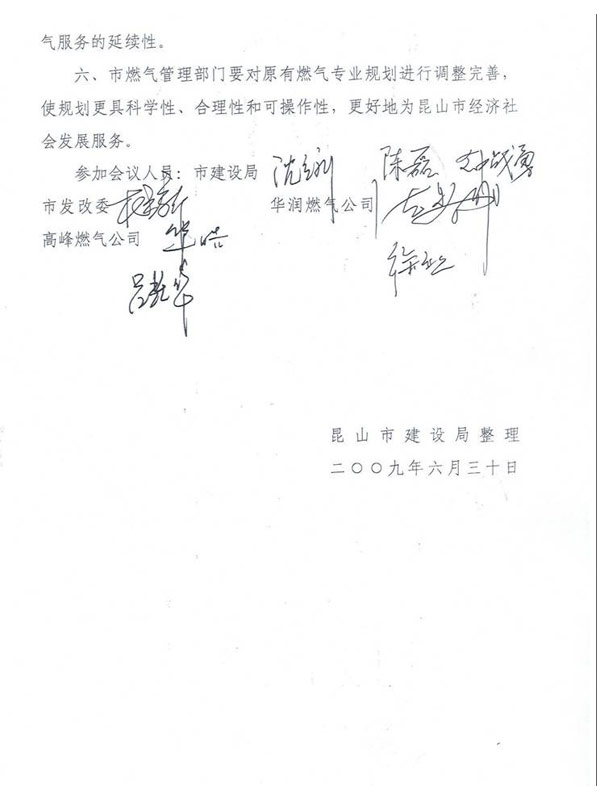 气服务的延续性。
六、市燃气管理部门要对原有燃气专业规划进行调整完善，
使规划更具科学性、合理性和可操作性，更好地为昆山市经济社
会发展服务。
参加会议人员：市建设局 陈磊
市发改委 华润燃气公司
高峰燃气公司
昆山市建设局整理
二〇〇九年六月三十日